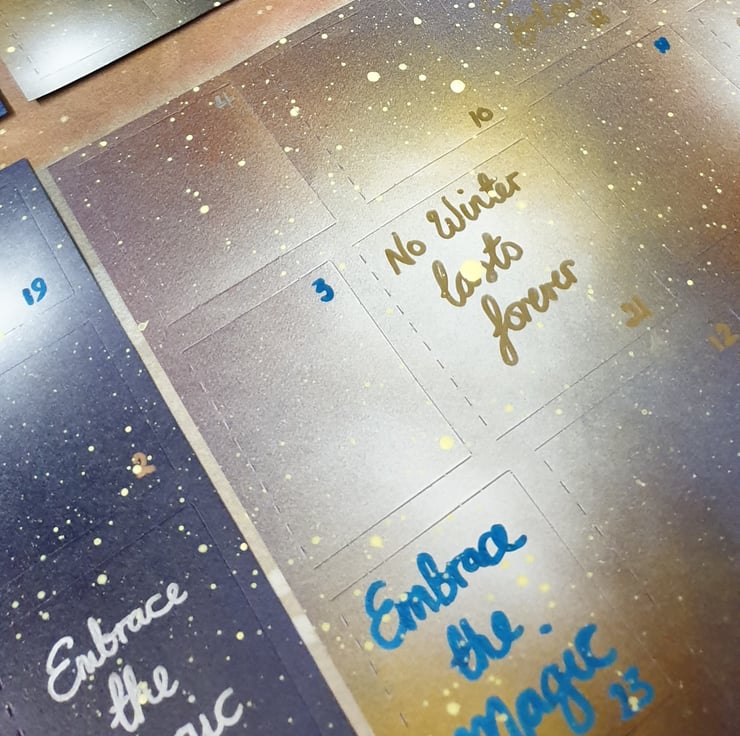 4
10
9
No Winter
lasts
forever
21
12
3
19
2
Embrace
the
Magic
23
Embrace
the